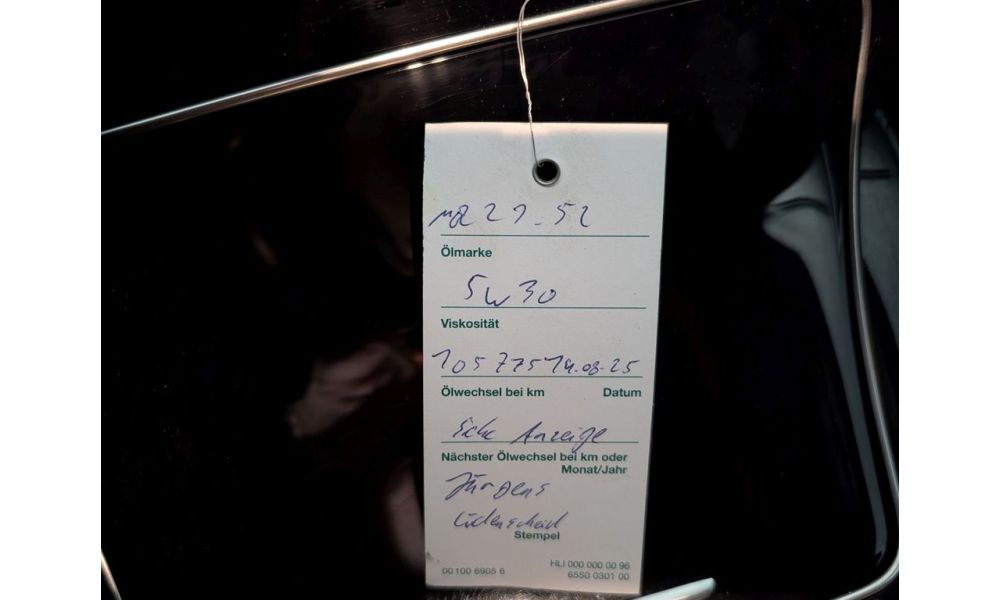 MB 229.52
Ölmarke
5w30
Viskosität
105775 19.08.25
Ölwechsel bei km Datum
Siehe Anzeige
Nächster Ölwechsel bei km oder
Monat/Jahr
Jürgens
Lüdenscheid
Stempel
HLI 000 000 00 96
00 100 6905 6
6550 0301 00